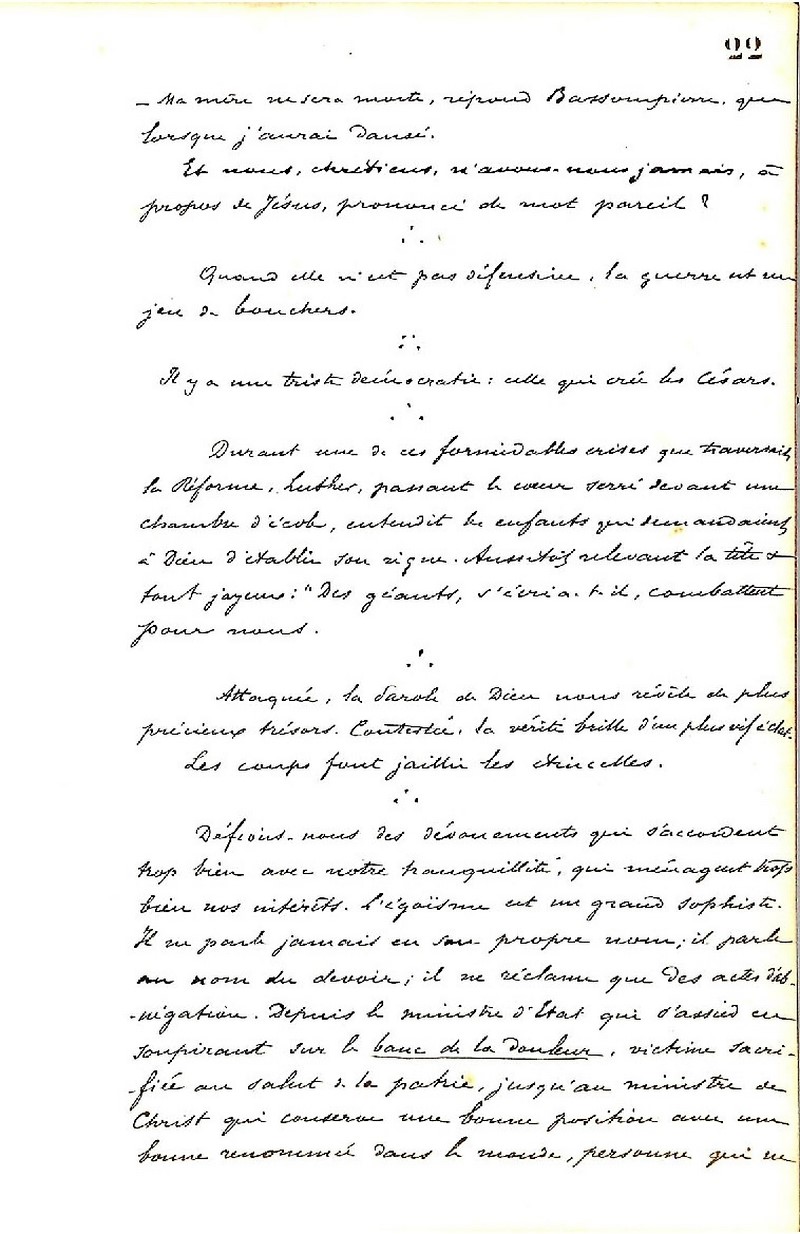 22
– Ma mère ne sera morte, répond Bassompierre, que
lorsque j'aurai dansé.
Et nous, chrétiens, n'avons-nous jamais, à
propos de Jésus, prononcé de mot pareil ?
∴
Quand elle n'est pas défensive, la guerre est un
jeu de bouchers.
∴
Il y a une triste démocratie : celle qui crée les Césars.
∴
Durant une de ces formidables crises que traversait
la Réforme, Luther, passant le cœur serré devant une
chambre d'école, entendit les enfants qui demandaient
à Dieu d'établir son règne. Aussitôt relevant la tête &
tout joyeux : "Des géants, s'écria-t-il, combattent
pour nous.
∴
Attaquée, la Parole de Dieu nous révèle de plus
précieux trésors. Contestée, la vérité brille d'un plus vif éclat.
Les coups font jaillir les étincelles.
∴
Défions-nous des dévouements qui s'accordent
trop bien avec notre tranquillité, qui ménagent trop
bien nos intérêts. L'égoïsme est un grand sophiste.
Il ne parle jamais en son propre nom ; il parle
au nom du devoir ; il ne réclame que des actes d'ab-
-négation. Depuis le ministre d'Etat qui s'assied en
soupirant sur le banc de la douleur, victime sacri-
-fiée au salut de la patrie, jusqu'au ministre de
Christ qui conserve une bonne position avec une
bonne renommée dans le monde, personne qui ne